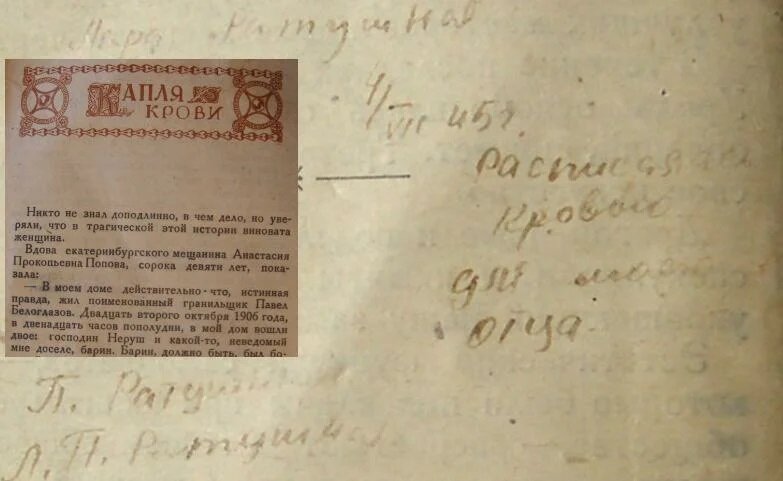 Мара Ратушная
4/VII 45г.
Расписалась
кровью
для моего
отца
П. Ратушная
Л. П. Ратушная
КАПЛЯ
КРОВИ
Никто не знал доподлинно, в чем дело, но уве-
ряли, что в трагической этой истории виновата
женщина.
Вдова екатеринбургского мещанина Анастасия
Прокопьевна Попова, сорока девяти лет, пока-
зала:
— В моем доме действительно-что, истинная
правда, жил поименованный гранильщик Павел
Белоглазов. Двадцать второго октября 1906 года,
в двенадцать часов пополудни, в мой дом вошли
двое: господин Неруш и какой-то, неведомый
мне доселе, барин. Барин, должно быть, был бо-